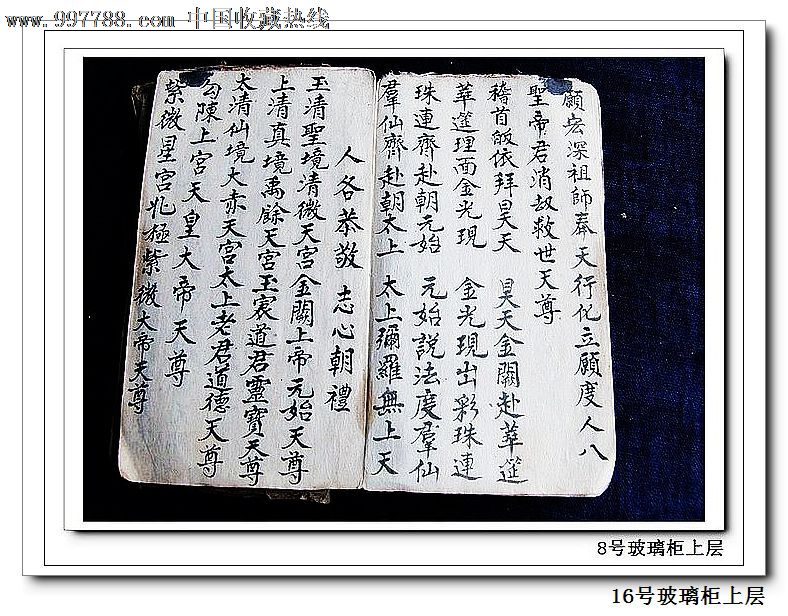 www.997788.com 中国收藏热线
願宏深祖師奉天行化立願度人八
聖帝君消劫救世天尊
稽首皈依拜昊天 昊天金闕赴華筵
華筵理面金光現 金光現出彩珠連
珠連齊赴朝元始 元始説法度羣仙
羣仙齊赴朝太上 太上彌羅無上天
人各恭敬 志心朝禮
玉清聖境清微天宫金闕上帝元始天尊
上清真境禹餘天宮玉宸道君靈寶天尊
太清仙境大赤天宮太上老君道德天尊
勾陳上宮天皇大帝天尊
紫微星宮北極紫微大帝天尊
8号玻璃柜上层
16号玻璃柜上层